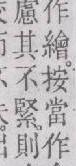 作繪按當作
慮其不緊則